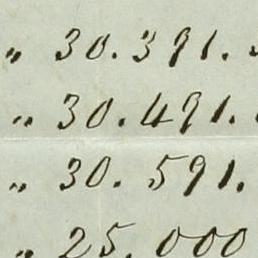 „ 30.391.
„ 30.491.
„ 30.591.
„ 25.000